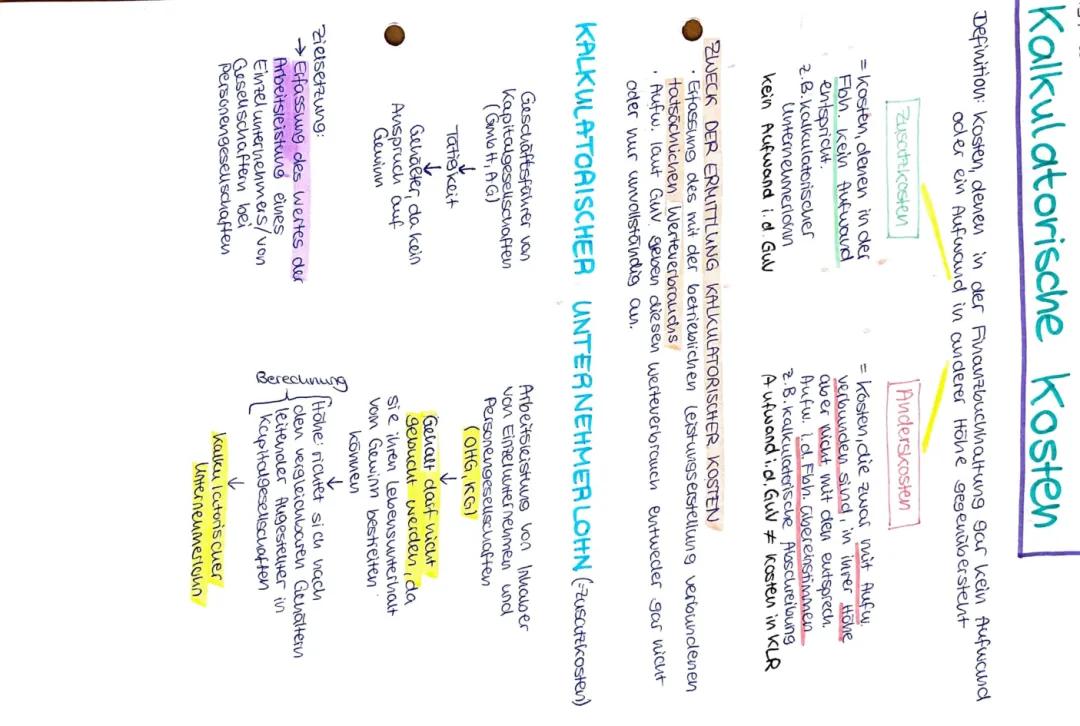 Kalkulatorische Kosten
Definition: Kosten, denen in der Finanzbuchhaltung gar kein Aufwand
oder ein Aufwand in anderer Höhe gegenübersteht
Zusatzkosten
= Kosten, denen in der
Fbh. kein Aufwand
entspricht.
z.B. kalkulatorischer
Unternehmerlohn
kein Aufwand i.d. GuV
Anderskosten
= Kosten, die zwar mit Aufw.
verbunden sind, in ihrer Höhe
aber nicht mit den entsprech.
Aufw. i.d. Fbh. übereinstimmen
z.B. kalkulatorische Abschreibung
Aufwand i.d. GuV ≠ Kosten in KLR
ZWECK DER ERMITTLUNG KALKULATORISCHER KOSTEN
· Erfassung des mit der betrieblichen Leistungserstellung verbundenen
tatsächlichen Werteverbrauchs
· Aufw. laut GuV geben diesen Werteverbrauch entweder gar nicht
oder nur unvollständig an.
KALKULATORISCHER UNTERNEHMERLOHN (=Zusatzkosten)
Geschäftsführer von
Kapitalgesellschaften
(GmbH, AG)
↓
Tätigkeit
↓
Gehälter, da kein
Anspruch auf
Gewinn
Arbeitsleistung von Inhaber
von Einzelunternehmen und
Personengesellschaften
(OHG, KG)
↓
Gehalt darf nicht
gebucht werden, da
sie ihren Lebensunterhalt
vom Gewinn bestreiten
können
↓
Berechnung
Höhe: richtet sich nach
den vergleichbaren Gehältern
leitender Angestellter in
Kapitalgesellschaften
↓
kalkulatorischer
Unternehmerlohn
Zielsetzung:
→ Erfassung des Wertes der
Arbeitsleistung eines
Einzelunternehmers/von
Gesellschaftern bei
Personengesellschaften